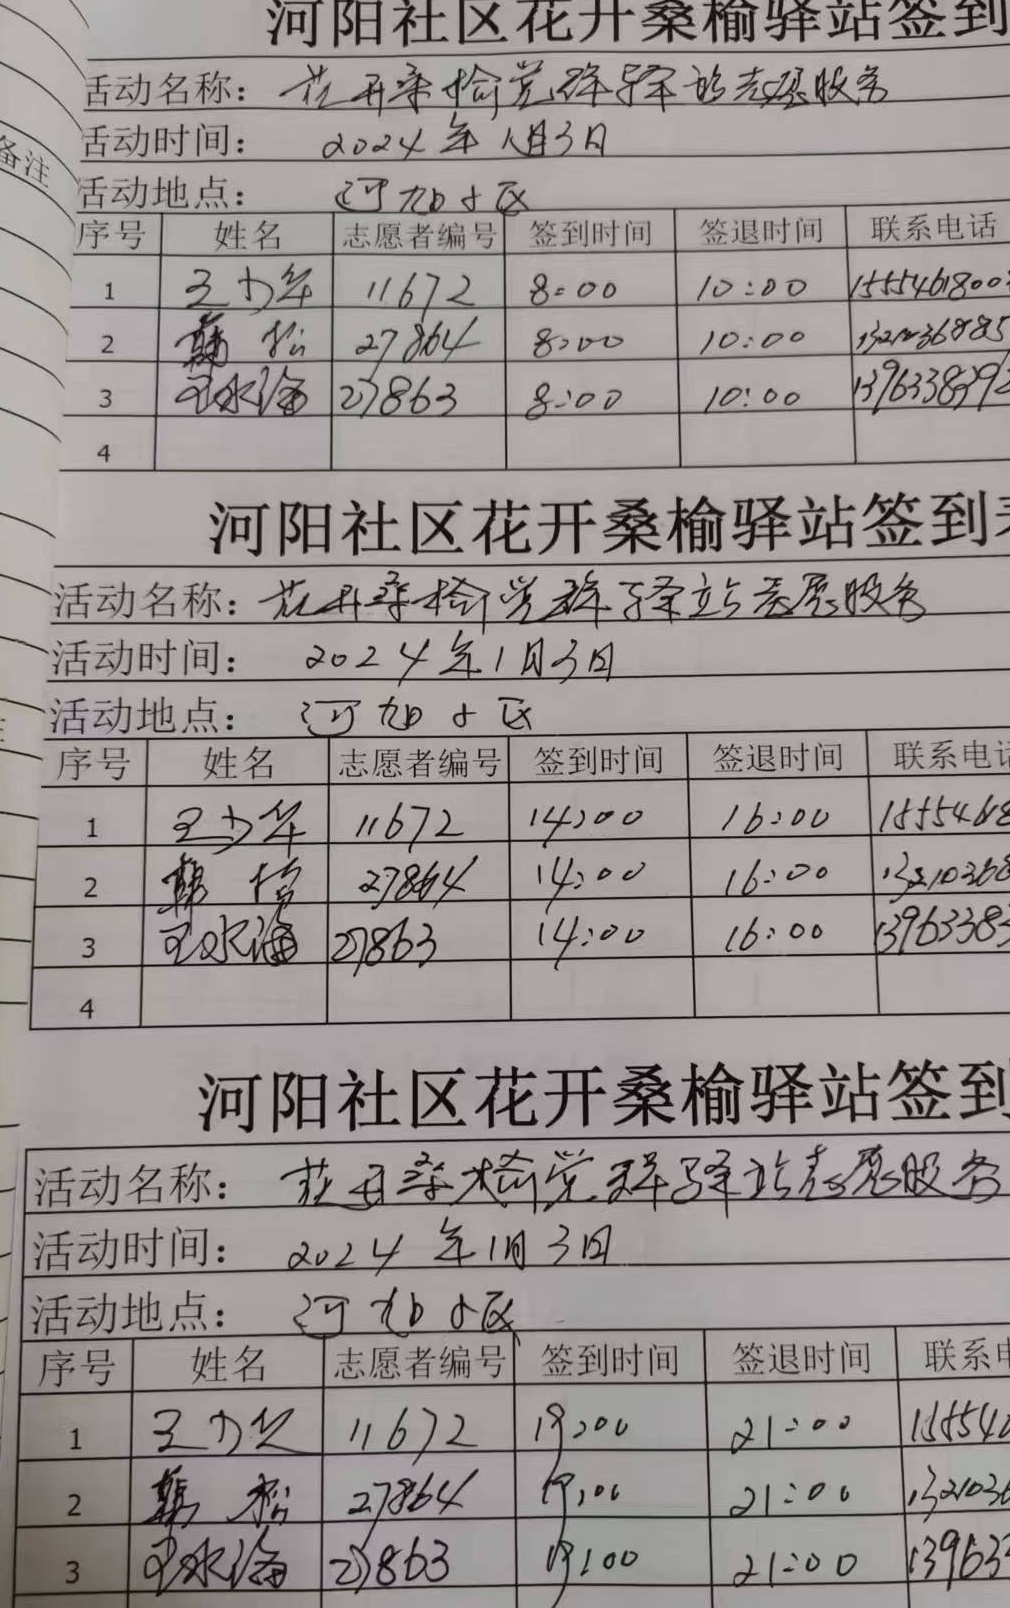 备注
河阳社区花开桑榆驿站签到
活动名称： 花开桑榆党群驿站志愿服务
活动时间： 2024年1月3日
活动地点： 河阳小区
序号 姓名 志愿者编号 签到时间 签退时间 联系电话
1 11672 8:00 10:00 1555461800
2 韩松 27864 8:00 10:00
3 王永海 27863 8:00 10:00
4
河阳社区花开桑榆驿站签到
活动名称： 花开桑榆党群驿站志愿服务
活动时间： 2024年1月3日
活动地点： 河阳小区
序号 姓名 志愿者编号 签到时间 签退时间 联系电
1 11672 14:00 16:00
2 韩松 27864 14:00 16:00
3 王永海 27863 14:00 16:00 13963383
4
河阳社区花开桑榆驿站签到
活动名称： 花开桑榆党群驿站志愿服务
活动时间： 2024年1月3日
活动地点： 河阳小区
序号 姓名 志愿者编号 签到时间 签退时间 联系
1 11672 19:00 21:00 15554
2 韩松 27864 19:00 21:00
3 王永海 27863 19:00 21:00 13963